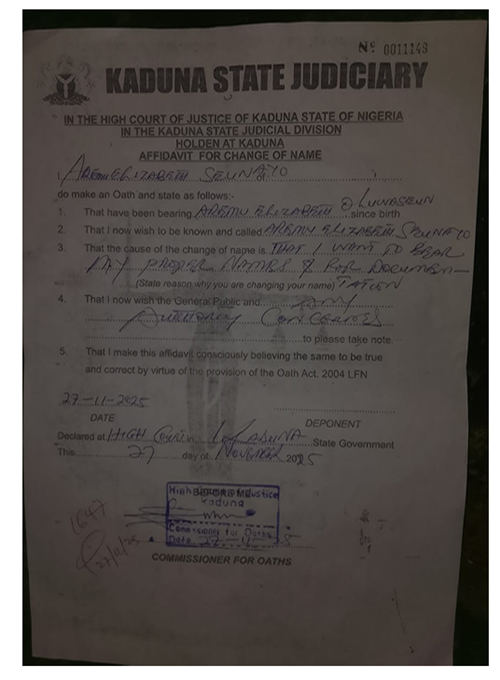 Nº 0011148
KADUNA STATE JUDICIARY
IN THE HIGH COURT OF JUSTICE OF KADUNA STATE OF NIGERIA
IN THE KADUNA STATE JUDICIAL DIVISION
HOLDEN AT KADUNA
AFFIDAVIT FOR CHANGE OF NAME
I, AREMU ELIZABETH SEUNAYO
do make an Oath and state as follows:-
1. That have been bearing AREMU ELIZABETH OLUWASEUN since birth
2. That I now wish to be known and called AREMU ELIZABETH SEUNAYO
3. That the cause of the change of name is THAT I WANT TO BEAR
MY PROPER NAMES & FOR DOCUMEN-
(State reason why you are changing your name) TATION
4. That I now wish the General Public and ANY
AUTHORITY CONCERNED
to please take note.
5. That I make this affidavit consciously believing the same to be true
and correct by virtue of the provision of the Oath Act. 2004 LFN
27-11-2025
DATE
DEPONENT
Declared at HIGH COURT KADUNA State Government
This 27 day of NOVEMBER 2025
BEFORE ME
High Justice
Kaduna
Commissioner for Oaths
Date 27-11-
1647
27/11/25
COMMISSIONER FOR OATHS